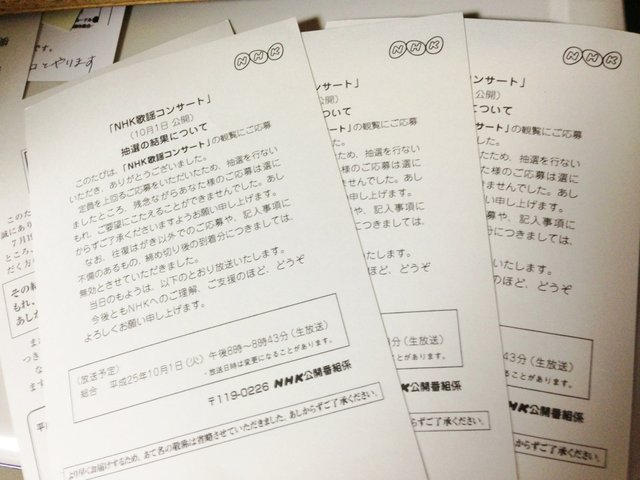 NHK
「NHK歌謡コンサート」
(10月1日 公開)
抽選の結果について
このたびは、「NHK歌謡コンサート」の観覧にご応募
いただき、ありがとうございました。
定員を上回るご応募をいただいたため、抽選を行ない
ましたところ、残念ながらあなた様のご応募は選に
もれ、ご要望にこたえることができませんでした。あし
からずご了承くださいますようお願い申し上げます。
なお、往復はがき以外でのご応募や、記入事項に
不備のあるもの、締め切り後の到着分につきましては、
無効とさせていただきました。
当日のもようは、以下のとおり放送いたします。
今後ともNHKへのご理解、ご支援のほど、どうぞ
よろしくお願い申し上げます。
(放送予定)
総合 平成25年10月1日(火)午後8時〜8時43分(生放送)
・放送日時は変更になることがあります。
〒119-0226 NHK公開番組係
より早くお届けするため、あて名の敬称は省略させていただきました。あしからずご了承ください。
NHK
コンサート」
公開)
ついて
ート」の観覧にご応募
ため、抽選を行ない
様のご応募は選に
ませんでした。あし
い申し上げます。
募や、記入事項に
分につきましては、
いたします。
のほど、どうぞ
43分(生放送)
ことがあります。
NHK公開番組係
しからずご了承ください。
NHK
ンサート」
公開)
ついて
ート」の観覧にご応募
ため、抽選を行ない
のご応募は選に
せんでした。あし
申し上げます。
や、記入事項に
つきましては、
たします。
のほど、どうぞ
43分(生放送)
があります。
NHK公開番組係
らずご了承ください。
です。
とやります